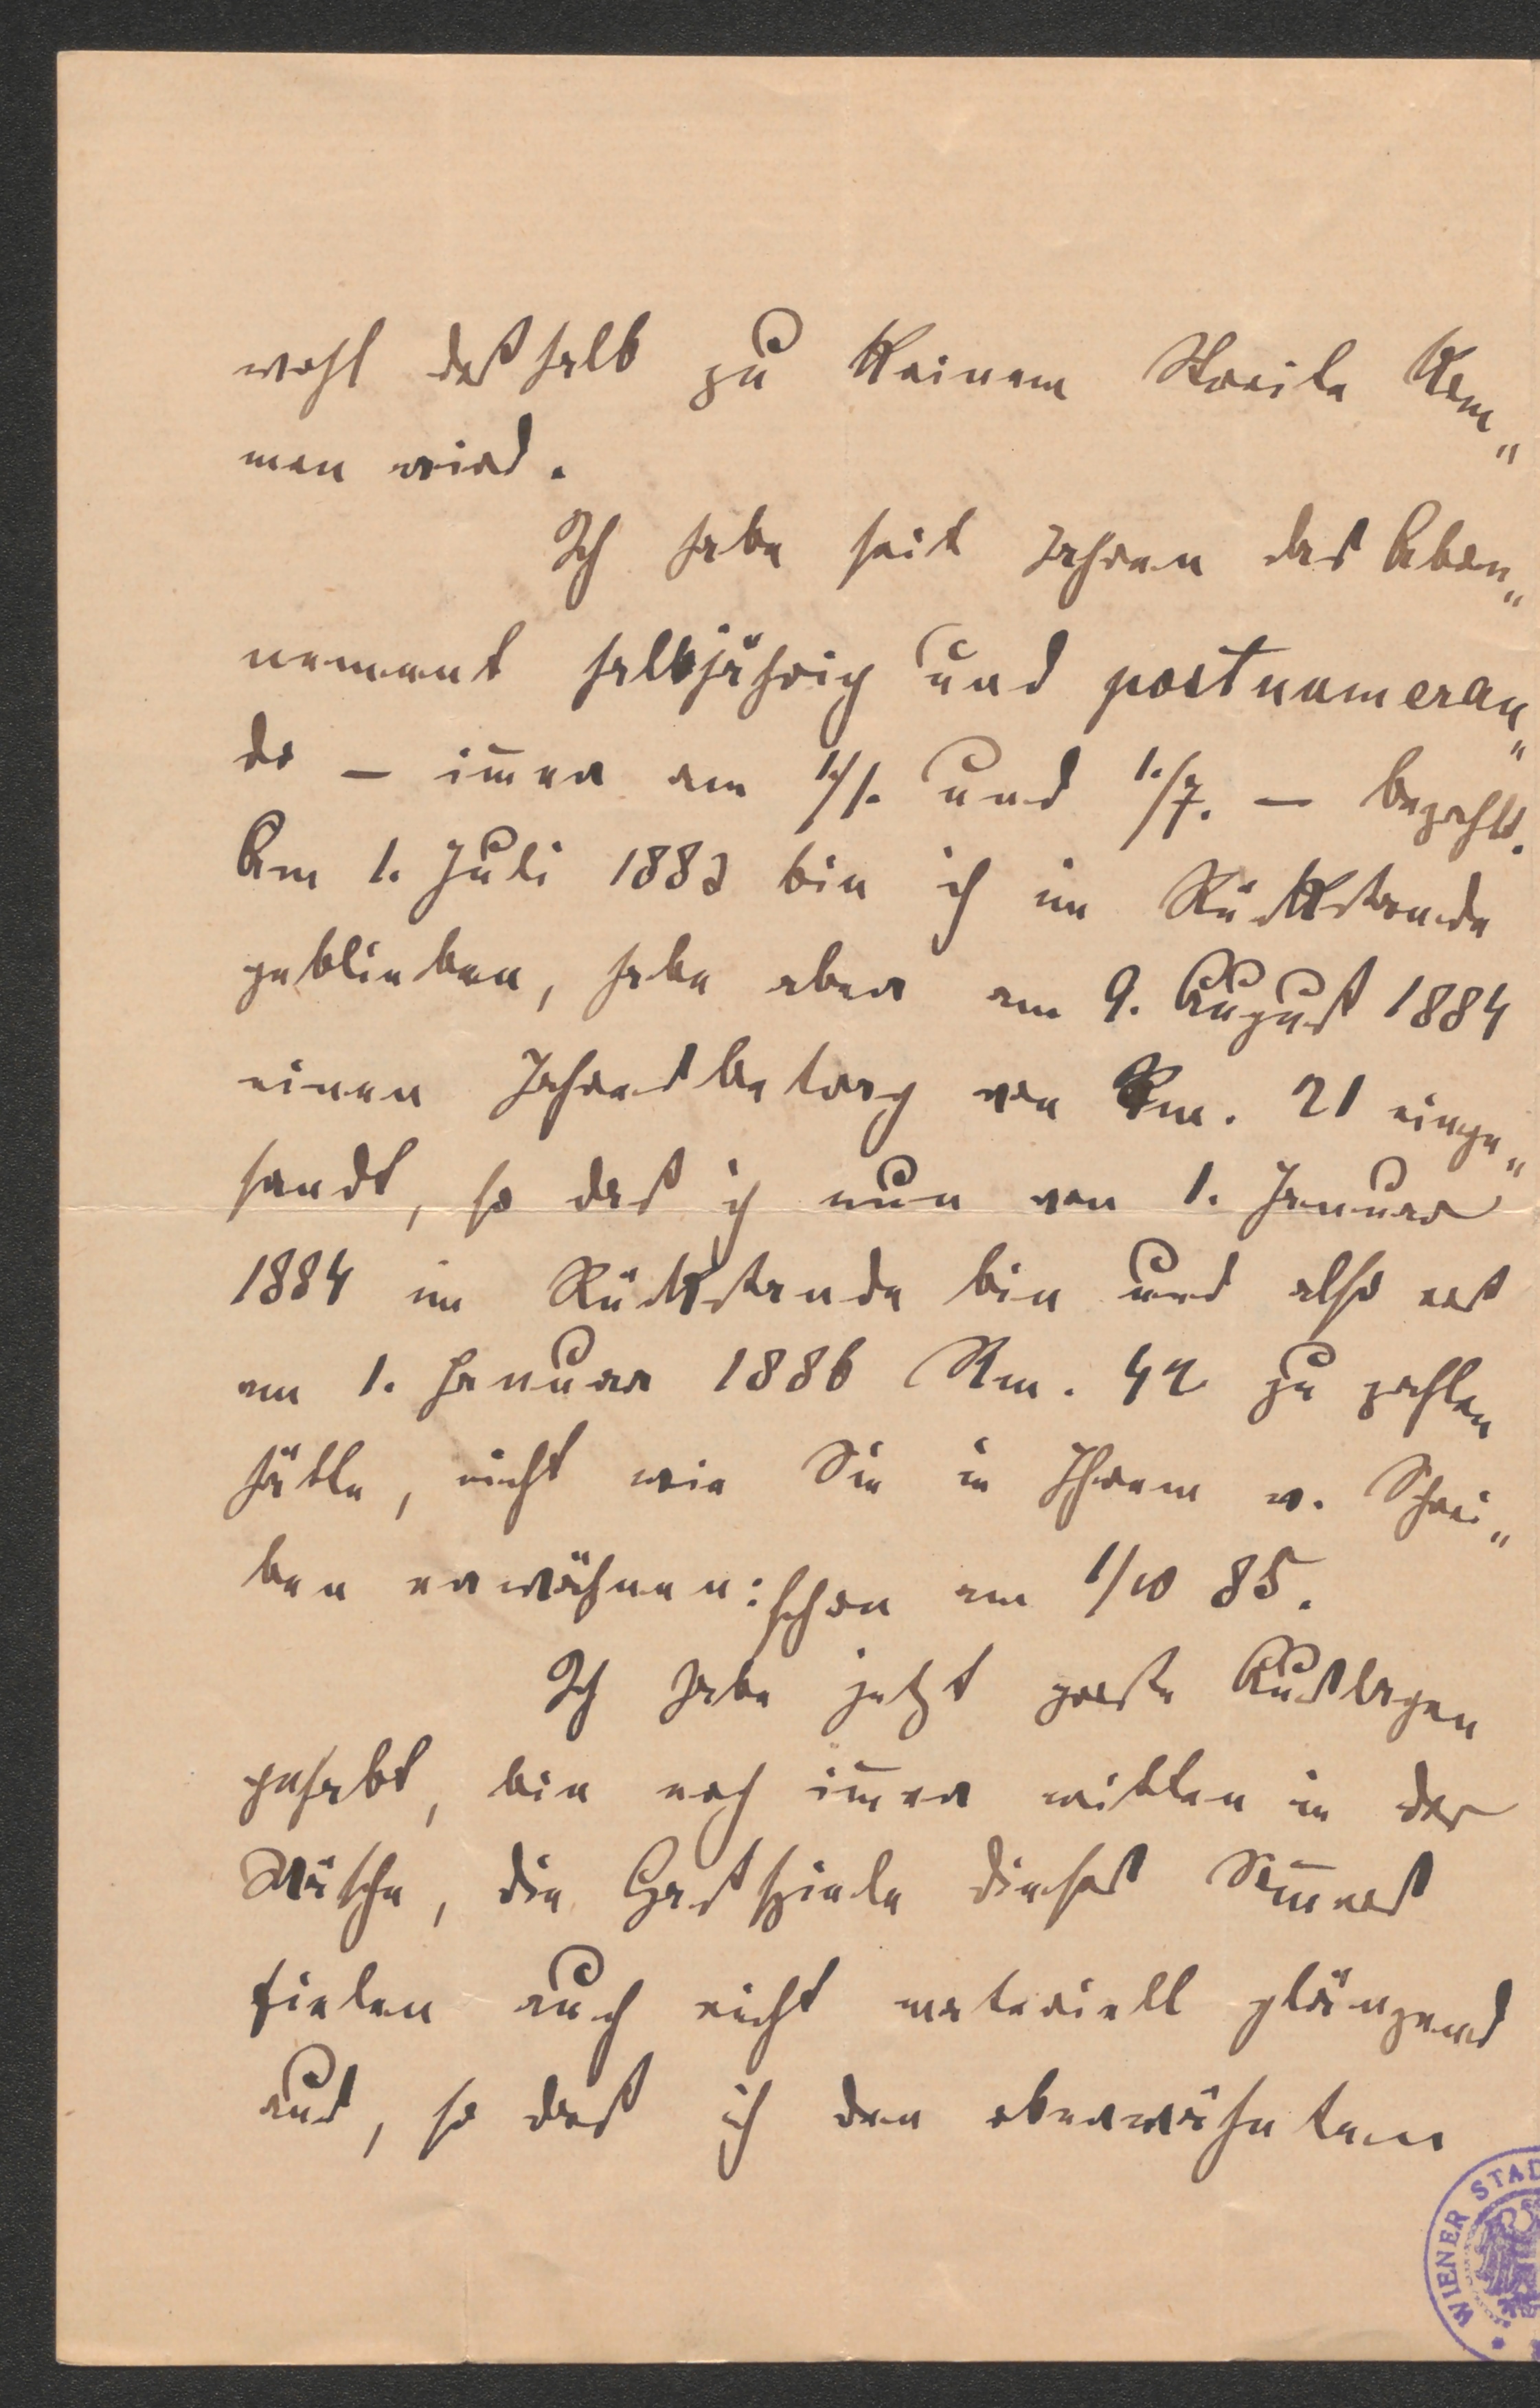 wohl deßhalb zu keinem Streite kom„
men wird.
Ich habe seit Jahren das Abon„
nement halbjährig und postnumeran„
do – im̅er am 1./1. und 1./7. – bezahlt.
Am 1. Juli 1883 bin ich im Rückstande
geblieben, habe aber am 9. August 1884
einen Jahresbetrag von Rm. 21 einge„
sandt, so daß ich nun von 1. Januar
1884 im Rückstande bin und also erst
am 1. Januar 1886 Rm. 42 zu zahlen
hätte, nicht wie Sie in Ihrem w. Schrei„
ben erwähnen: schon am 1/10 85.
Ich habe jetzt große Auslagen
gehabt, bin noch im̅er mitten in der
die Gastspiele dieses Som̅ers
fielen auch nicht materiell glänzend
aus, so daß ich den oberwähnten
WIENER STAD